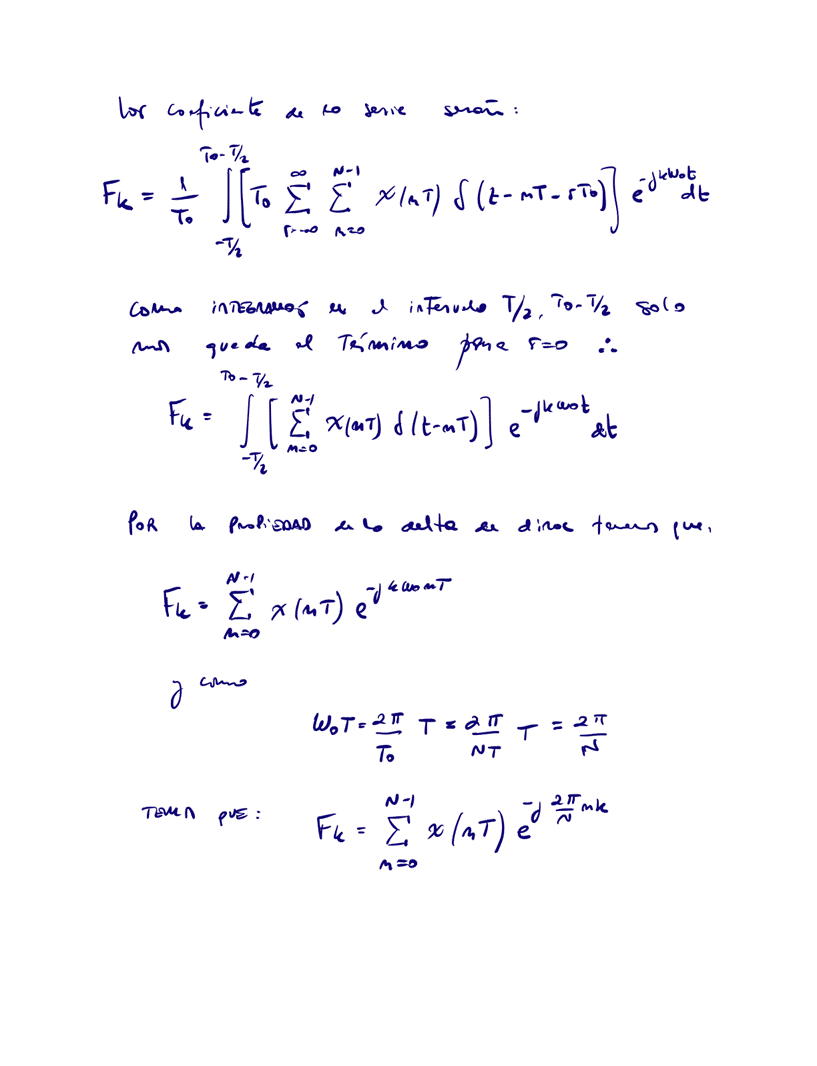 Los coeficiente de la serie serán:
F_k = 1/T_0 ∫_{-T/2}^{T_0-T/2} [T_0 Σ_{r=-∞}^{∞} Σ_{n=0}^{N-1} x(nT) δ(t-nT-rT_0)] e^{-jkω_0t} dt
como INTEGRAMOS en el intervalo T/2, T_0-T/2 solo
nos queda el Término para r=0 ∴
F_k = ∫_{-T/2}^{T_0-T/2} [Σ_{n=0}^{N-1} x(nT) δ(t-nT)] e^{-jkω_0t} dt
POR la PROPIEDAD de la delta de dirac tenemos que,
F_k = Σ_{n=0}^{N-1} x(nT) e^{-jkω_0nT}
y como
ω_0T = 2π/T_0 T = 2π/NT T = 2π/N
QUE:
F_k = Σ_{n=0}^{N-1} x(nT) e^{-j 2π/N nk}